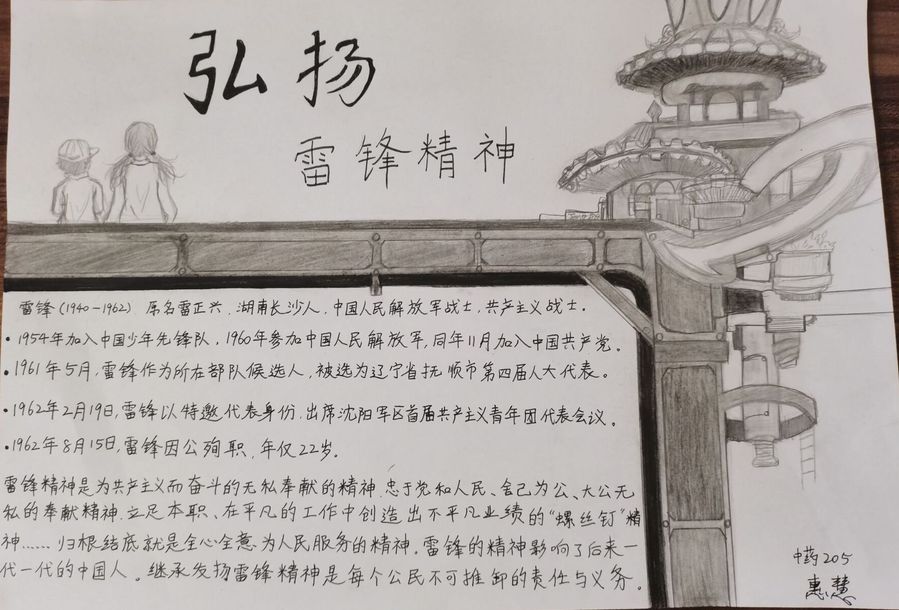 弘扬
雷锋精神
雷锋(1940-1962) 原名雷正兴,湖南长沙人,中国人民解放军战士,共产主义战士。
•1954年加入中国少年先锋队,1960年参加中国人民解放军,同年11月加入中国共产党。
•1961年5月,雷锋作为所在部队候选人,被选为辽宁省抚顺市第四届人大代表。
•1962年2月19日,雷锋以特邀代表身份,出席沈阳军区首届共产主义青年团代表会议。
•1962年8月15日,雷锋因公殉职,年仅22岁。
雷锋精神是为共产主义而奋斗的无私奉献的精神,忠于党和人民、舍己为公、大公无
私的奉献精神,立足本职、在平凡的工作中创造出不平凡业绩的“螺丝钉”精
神……归根结底就是全心全意为人民服务的精神。雷锋的精神影响了后来一
代一代的中国人。继承发扬雷锋精神是每个公民不可推卸的责任与义务。
中药205
惠慧